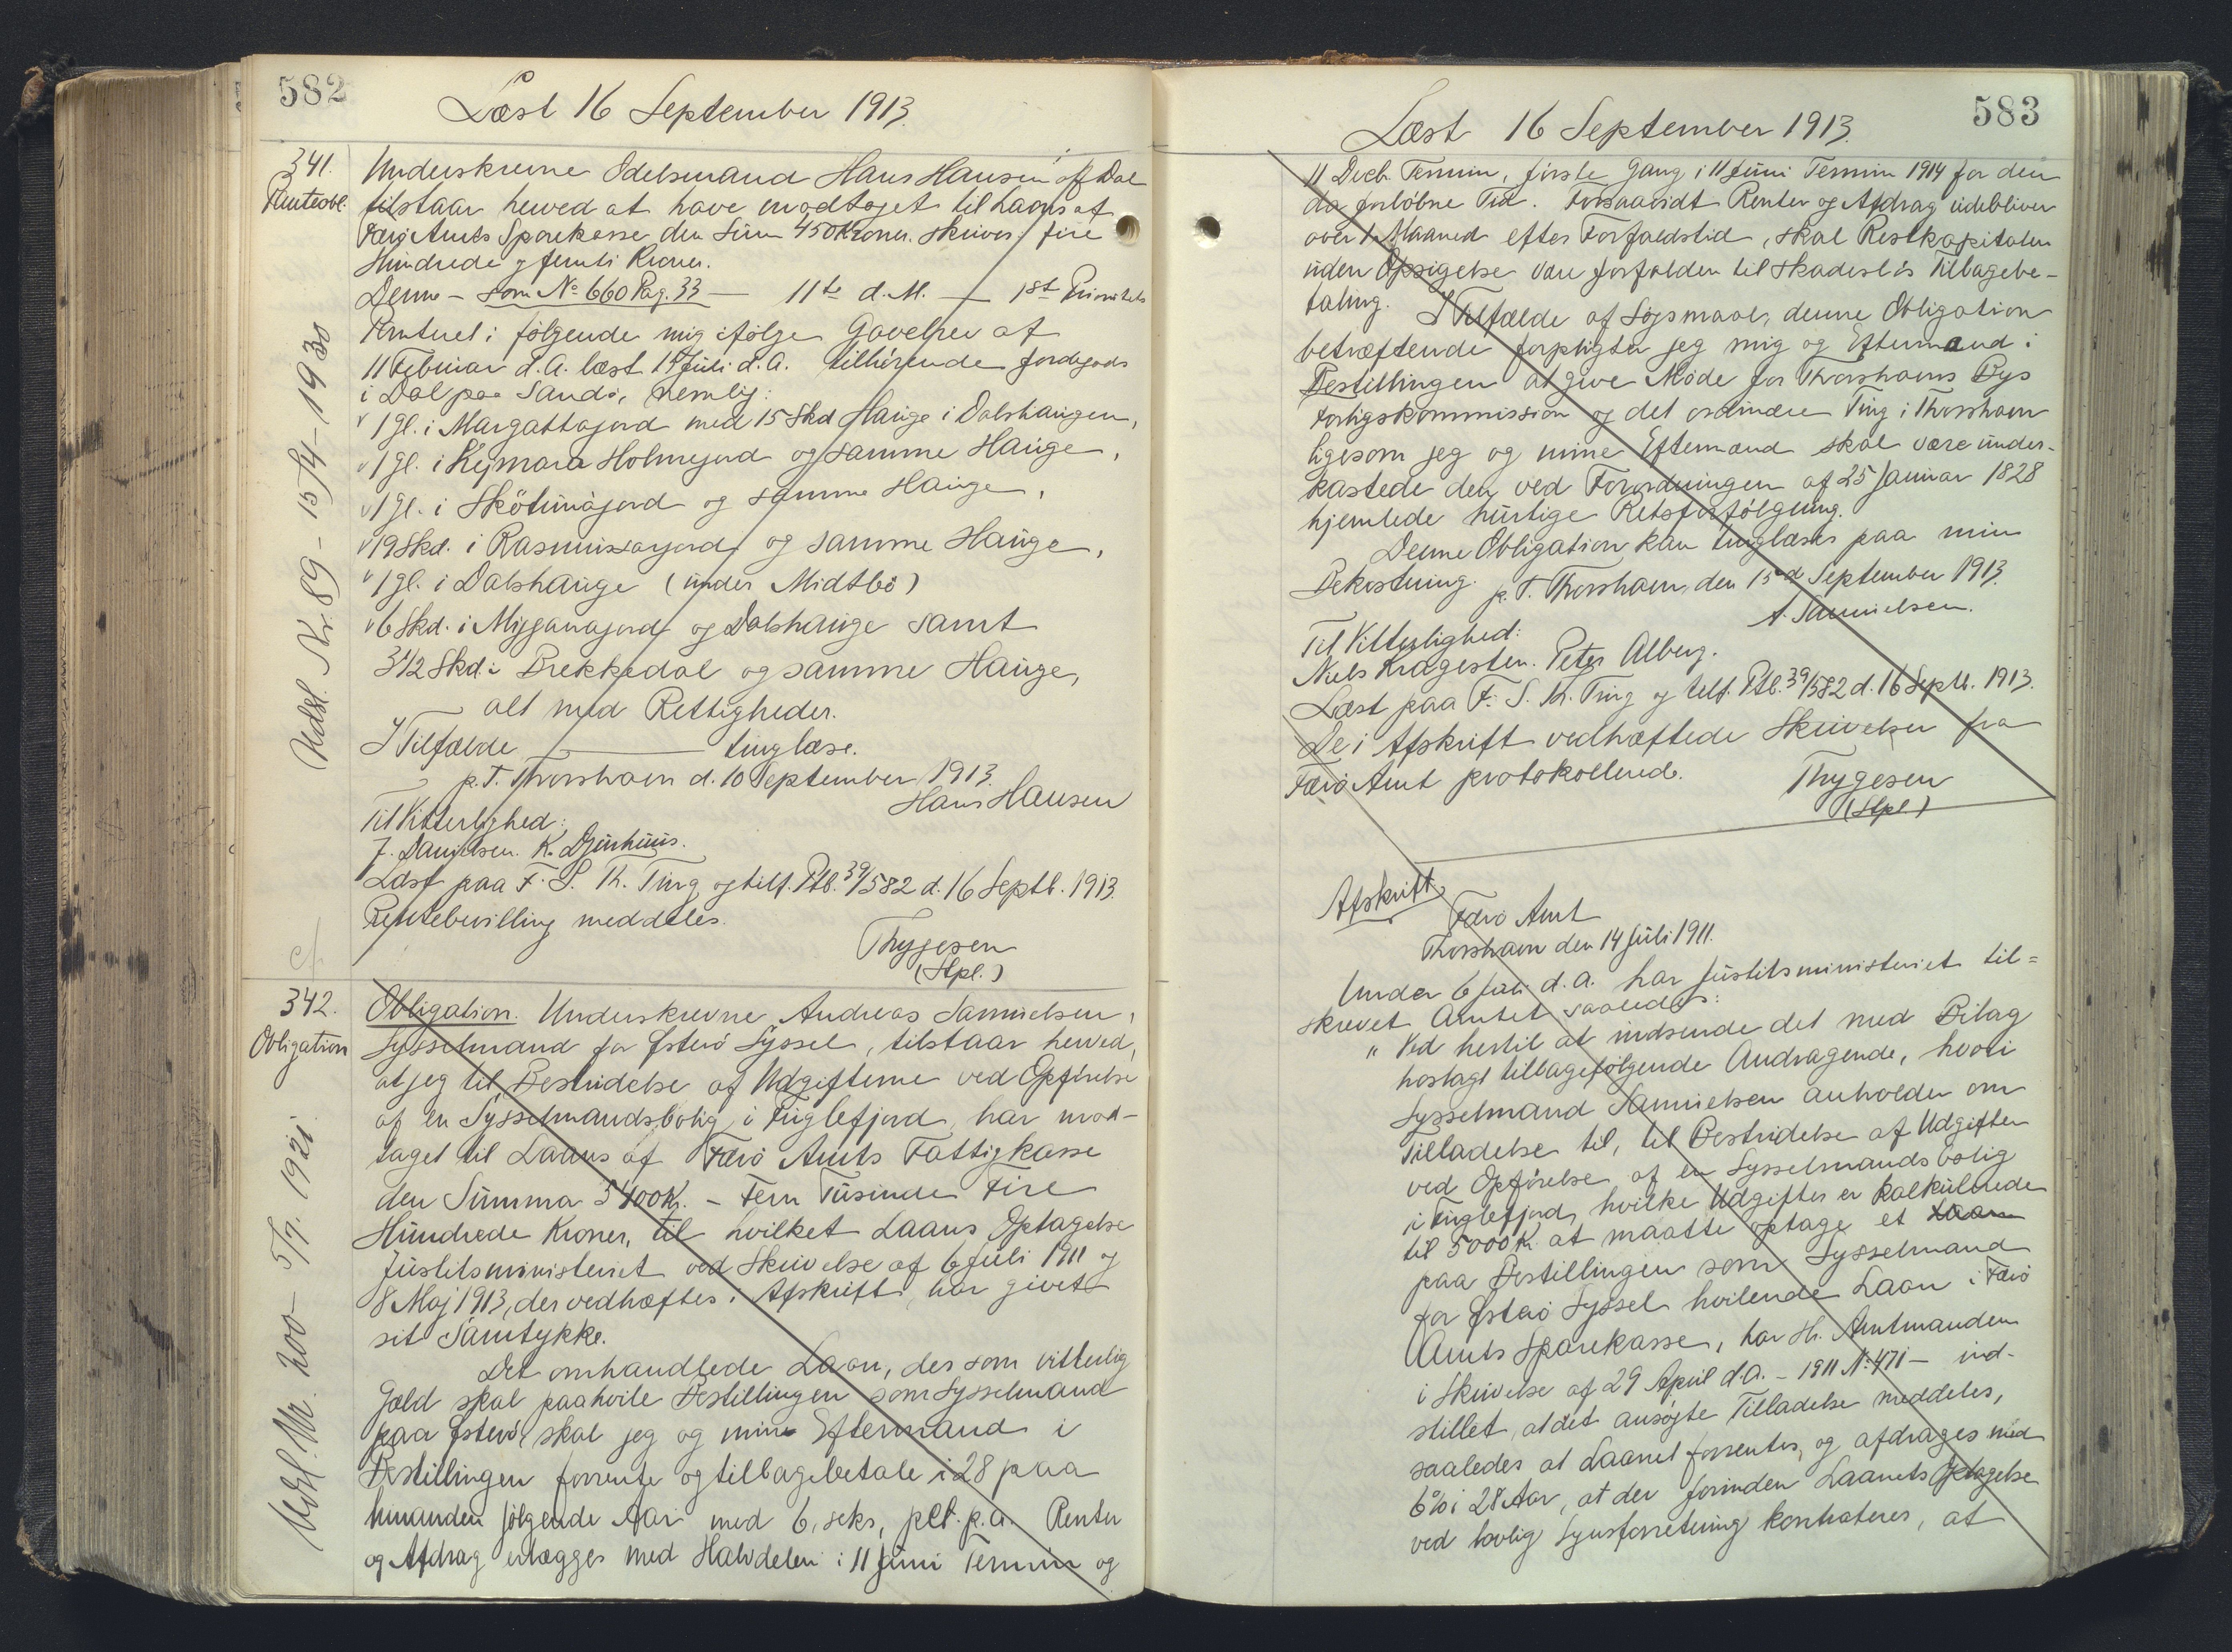 582
Læst 16 September 1913.
341.
Rentesbl.
Underskrevne Odelsmand Hans Hansen af Dal
tilstaar herved at have modtaget til Laans af
Færø Amts Sparekasse den Sum 450 Kroner. skriver fire
Hundrede og femti Kroner.
Denne – som No 660 Pag. 33 — 11te d. M. — 1st Prioritets
Panteret i følgende mig ifølge Gavebrev af
11 Februar d. A. læst 1 Juli d. A. tilhørende Jordegods
i Dal paa Sandø, nemlig:
1 Gl. i Margattajord med 15 Skd Hauge i Dalshaugen,
1 Gl. i Kejmara Holmejord og samme Hauge,
1 Gl. i Skötunajord og samme Hauge,
19 Skd. i Rasmussarjord og samme Hauge,
1 Gl. i Dalshauge (under Midtbø)
6 Skd. i Miggarajord og Dalshauge samt
3 1/2 Skd. i Brekkedal og samme Hauge,
alt med Rettigheder.
I Tilfælde — tinglæse.
p. T. Thorshavn d. 10 September 1913.
Hans Hansen
Til Vitterlighed:
J. Danielsen. K. Djurhuus.
Læst paa F. S. Th. Ting og tilf. Ptb. 39/582 d. 16 Septb. 1913.
Rentebevilling meddeles.
Thygesen
(Stpl.)
Udsl. Nr 89 – 15/4–1930
cf
342.
Obligation
Obligation. Underskrevne Andreas Samuelsen,
Sysselmand for Østerø Syssel, tilstaar herved,
at jeg til Bestridelse af Udgifterne ved Opførelse
af en Sysselmandsbolig i Fuglefjord har mod-
taget til Laans af Færø Amts Fattigkasse
den Summa 5400 Kr. – Fem Tusinde Fire
Hundrede Kroner, til hvilket Laans Optagelse
Justitsministeriet ved Skrivelse af 6 Juli 1911 og
8 Maj 1913, der vedhæftes i Afskrift, har givet
sit Samtykke.
Det omhandlede Laan, der som vitterlig
Gæld skal paahvile Bestillingen som Sysselmand
paa Østerø, skal jeg og mine Eftermand i
Bestillingen forrente og tilbagebetale i 28 paa
hinanden følgende Aar med 6, seks, pCt. p. a. Renter
og Afdrag erlægges med Halvdelen i 11 Juni Termin og
Udsl. Nr. 200 – 5/7. 1921.
583
Læst 16 September 1913.
11 Decb. Termin, første Gang i 11 Juni Termin 1914 for den
da forløbne Tid. Forsaavidt Renter og Afdrag udebliver
over 1 Maaned efter Forfaldstid, skal Restkapitalen
uden Opsigelse være forfalden til skadesløs Tilbagebe-
taling. I Tilfælde af Søgsmaal, denne Obligation
betræffende forpligter jeg mig og Eftermænd i
Bestillingen at give Møde for Thorshavns Bys
Forligskommission og det ordinære Ting i Thorshavn
ligesom jeg og mine Eftermænd skal være under-
kastede den ved Forordningen af 25 Januar 1828
hjemlede hurtige Retsforfølgning.
Denne Obligation kan tinglæses paa min
Bekostning. p. T. Thorshavn, den 15d September 1913.
A. Samuelsen.
Til Vitterlighed:
Niels Kragesteen. Peter Alberg.
Læst paa F. S. Th. Ting og tilf. Ptb. 39/582 d. 16 Septb. 1913.
De i Afskrift vedhæftede Skrivelser fra
Færø Amt protokollered.
Thygesen
(Stpl.)
Afskrift
Færø Amt
Thorshavn den 14 Juli 1911.
Under 6 Juli d. A. har Justitsministeriet til=
skrevet Amtet saaledes:
" Ved hertil at indsende det med Bilag
hoslagt tilbagefølgende Andragende, hvori
Sysselmand Samuelsen anholder om
Tilladelse til, til Bestridelse af Udgiften
ved Opførelse af en Sysselmandsbolig
i Fuglefjord, hvilke Udgifter er kalkulerede
til 5000 Kr. at maatte optage et Laan
paa Bestillingen som Sysselmand
for Østerø Syssel hvilende Laan i Færø
Amts Sparekasse, har Hr. Amtmanden
i Skrivelse af 29 April d. A. – 1911 No 471 – ind-
stillet, at det ansøgte Tilladelse meddeles,
saaledes at Laanet forrentes og afdrages med
6% i 28 Aar, at der forinden Laanets Optagelse
ved lovlig Synsforretning konstateres, at